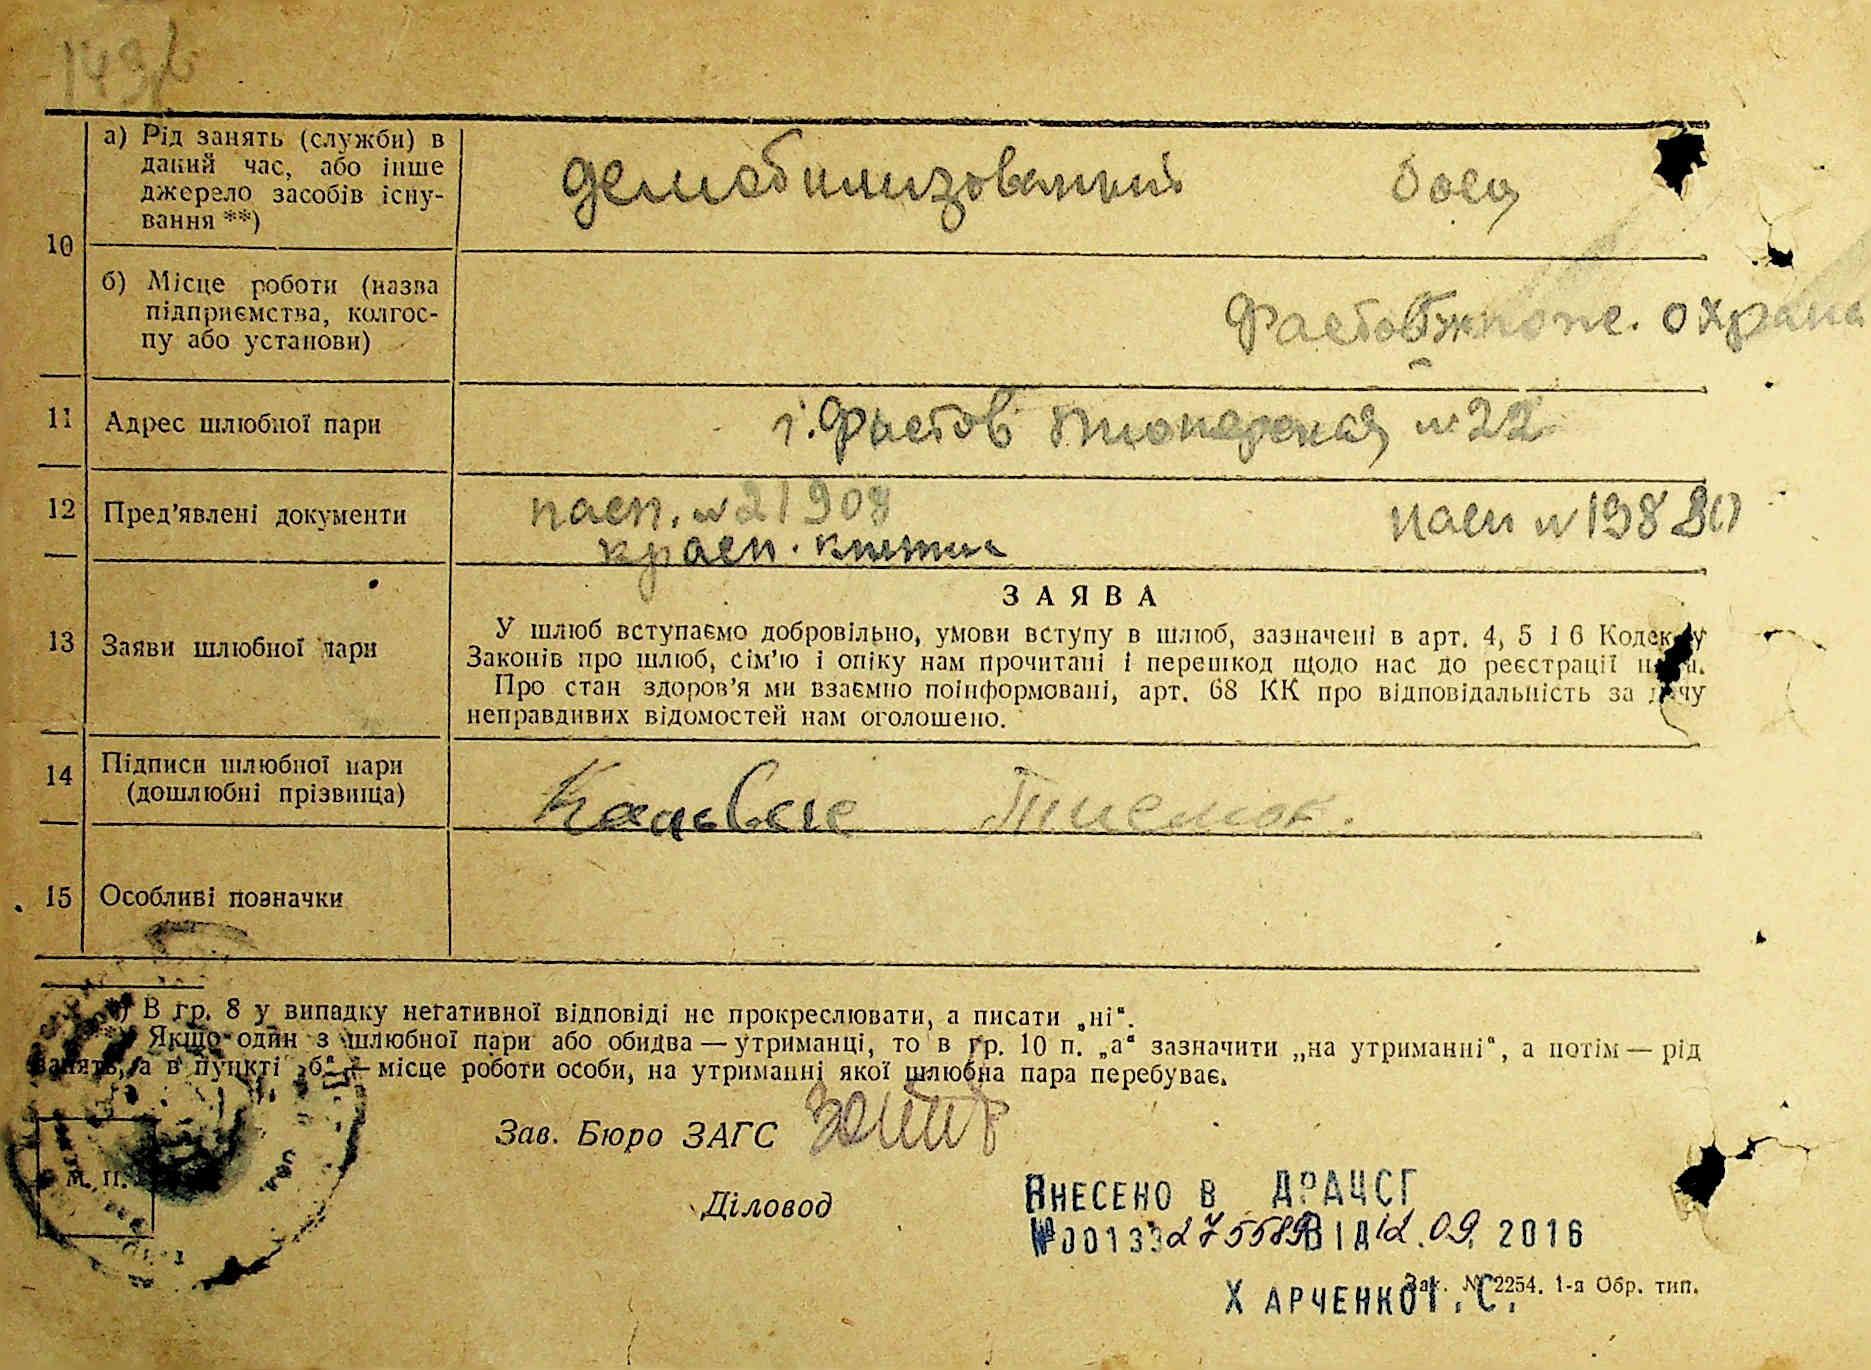 а) Рід занять (служби) в
даний час, або інше
джерело засобів існу-
вання **)
демобилизованный боец
10
б) Місце роботи (назва
підприємства, колгос-
пу або установи)
охрана
11 Адрес шлюбної пари
г. Фастов Пионерская № 22
12 Пред'явлені документи
пасп. № 21908 пасп № 19880
красн. книжка
13 Заяви шлюбної пари
ЗАЯВА
У шлюб вступаємо добровільно, умови вступу в шлюб, зазначені в арт. 4, 5 і 6 Кодексу
Законів про шлюб, сім'ю і опіку нам прочитані і перешкод щодо нас до реєстрації
Про стан здоров'я ми взаємно поінформовані, арт. 68 КК про відповідальність за дачу
неправдивих відомостей нам оголошено.
14 Підписи шлюбної пари
(дошлюбні прізвища)
15 Особливі позначки
*) В гр. 8 у випадку негативної відповіді не прокреслювати, а писати „ні“.
**) Якщо один з шлюбної пари або обидва — утриманці, то в гр. 10 п. „а“ зазначити „на утриманні“, а потім — рід
занять, а в пункті „б“ — місце роботи особи, на утриманні якої шлюбна пара перебуває.
Зав. Бюро ЗАГС
М. П.
Діловод
ВНЕСЕНО В ДРАЦСГ
№00133275589 ВІД 12.09. 2016
Зак. № 2254. 1-а Обр. тип.
ХАРЧЕНКО І. С.